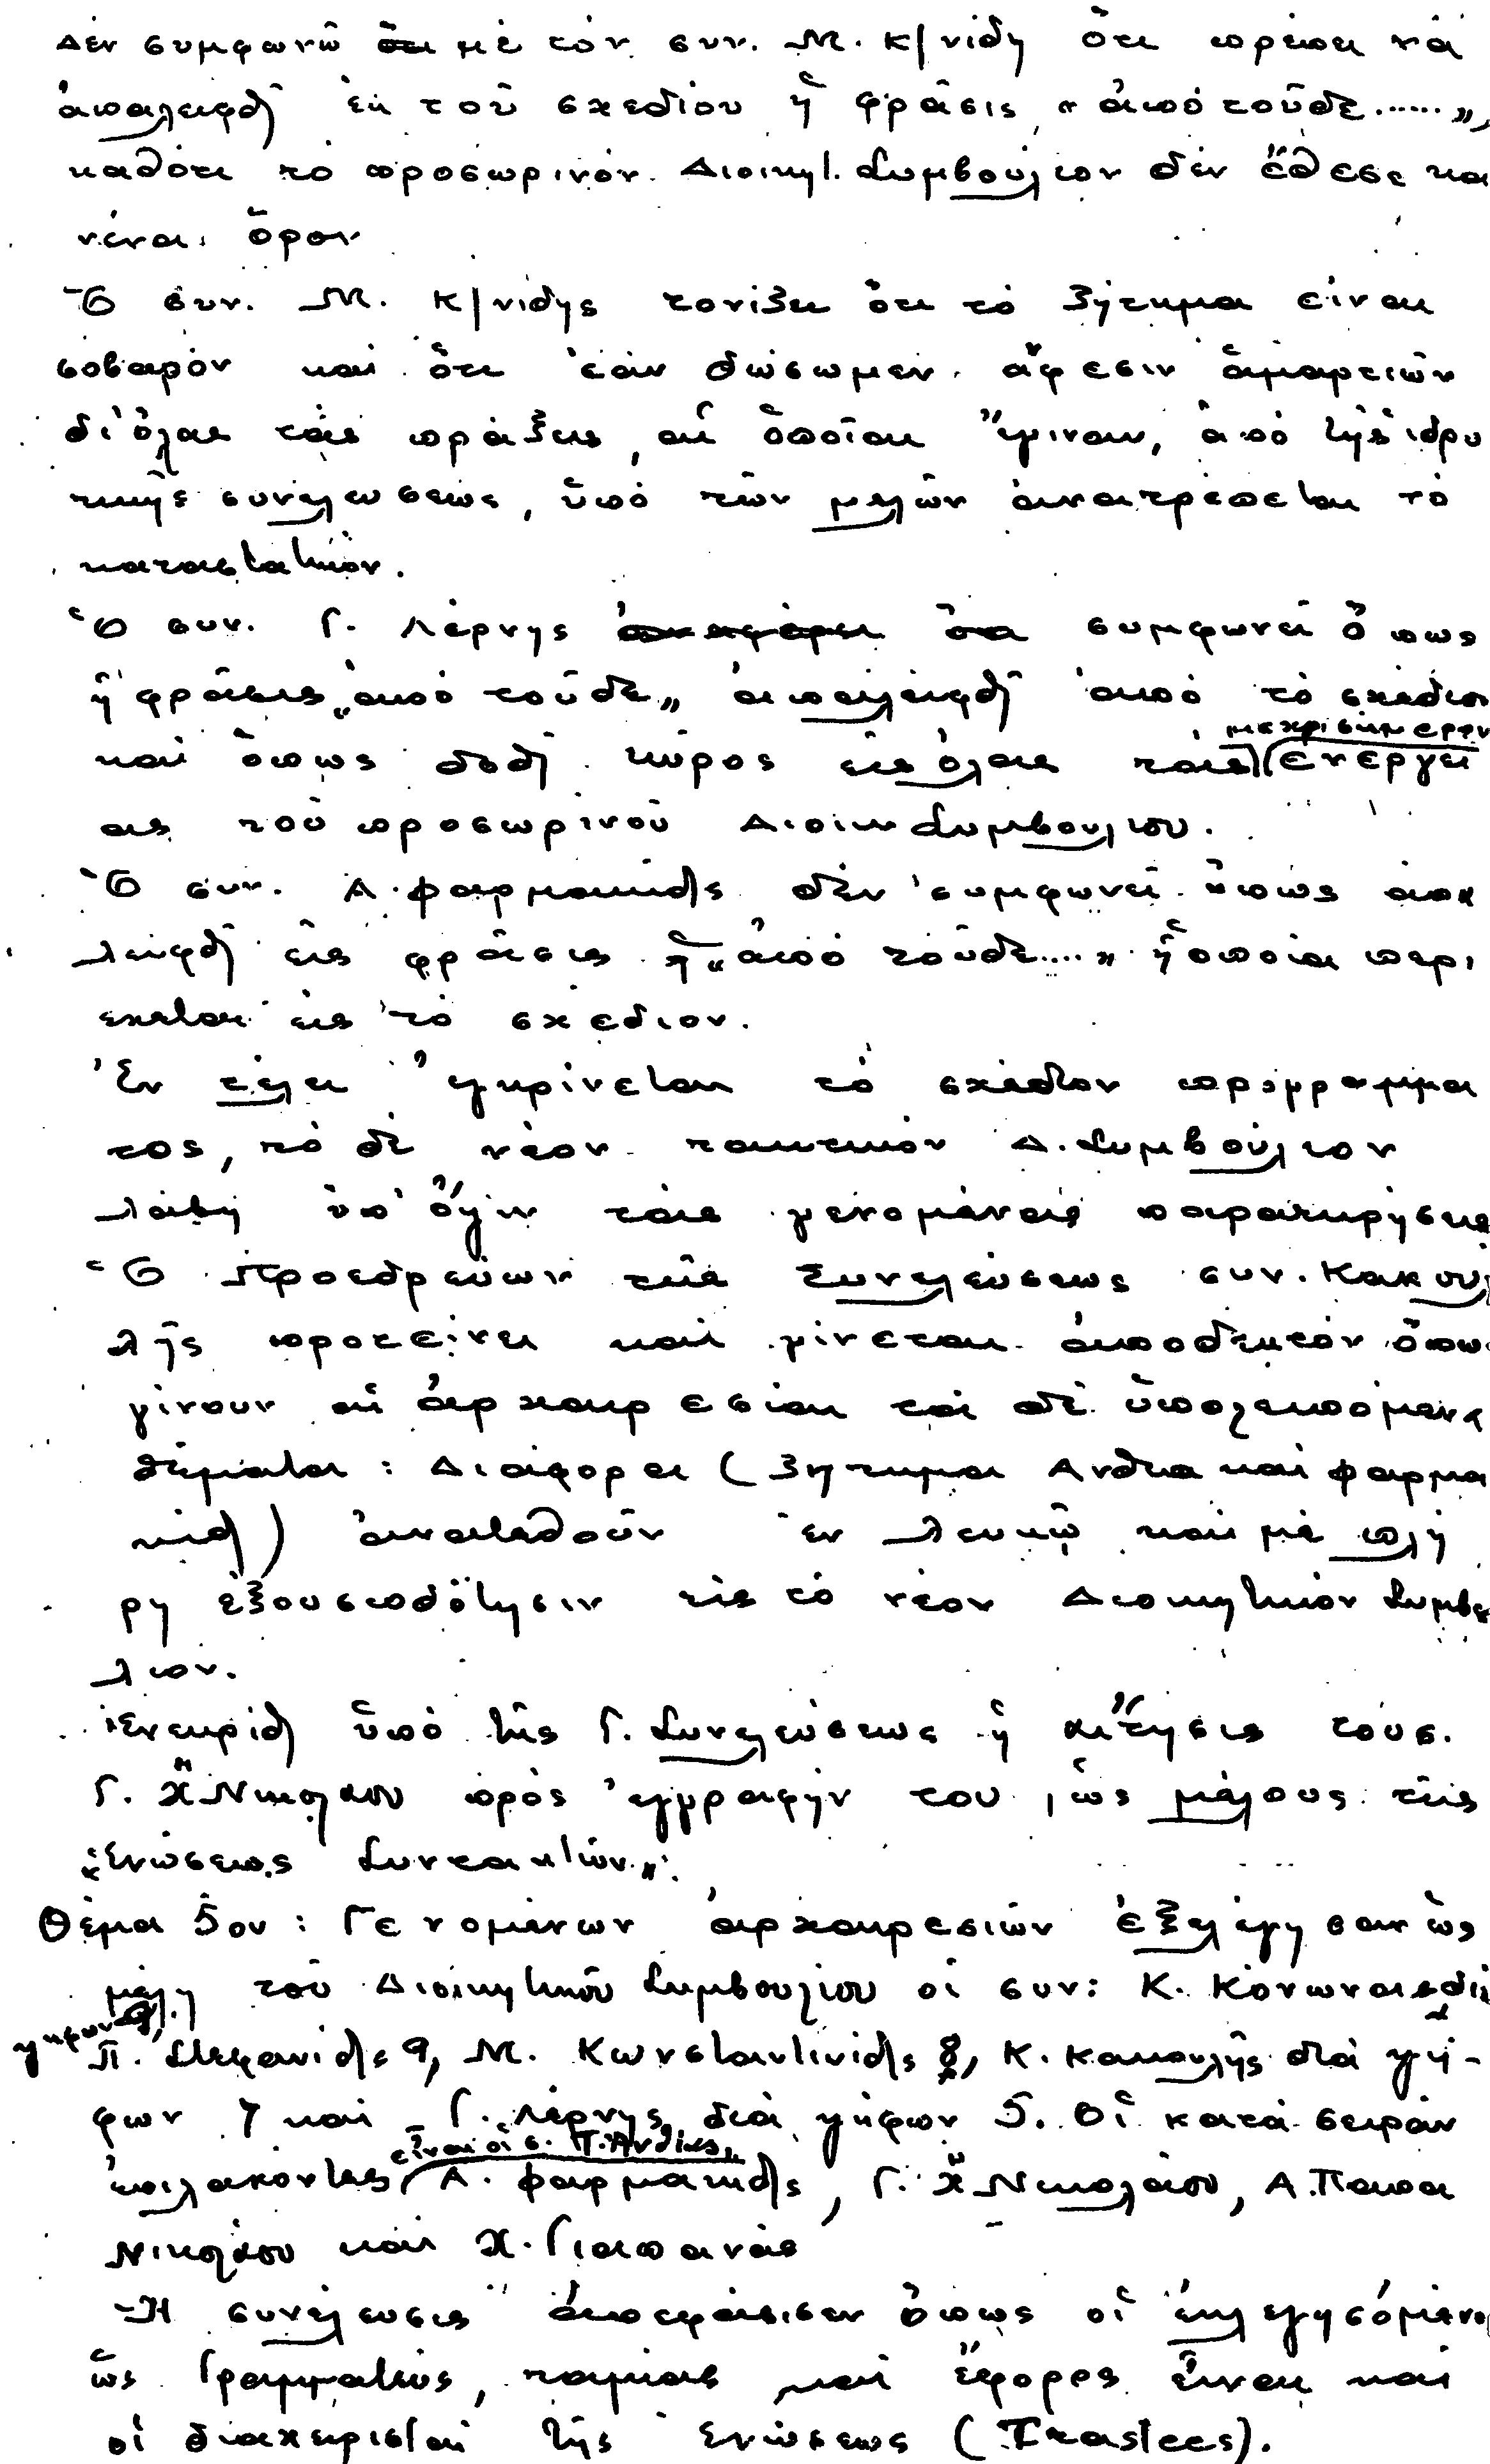 Δέν συμφωνῶ μέ τόν συν. Μ. Κ/νίδη ὅτι πρέπει νά
ἀπαλειφθῆ ἐκ τοῦ σχεδίου ἡ φρᾶσις "ἀπό τοῦδε......",
καθότι τό προσωρινόν Διοικητ. Συμβούλιον δέν ἔθεσε κα
νένα ὅρον
Ὁ συν. Μ. Κ/νίδης τονίζει ὅτι τό ζήτημα εἶναι
σοβαρόν καί ὅτι ἐάν δώσωμεν ἄφεσιν ἁμαρτιῶν
δι' ὅλας τάς πράξεις, αἱ ὁποῖαι ἔγιναν, ἀπό τῆς ἱδρυ
τικῆς συνελεύσεως, ὑπό τῶν μελῶν ἀνατρέπεται τό
καταστατικόν.
Ὁ συν. Γ. Λέρνης συμφωνεῖ ὅπως
ἡ φρᾶσις "ἀπό τοῦδε" ἀπαλειφθῆ ἀπό τό σχέδιο
καί ὅπως δοθῆ κῦρος εἰς ὅλας τάς μέχρι σήμερον ἐνεργεί
ας τοῦ προσωρινοῦ Διοικ Συμβουλίου.
Ὁ συν. Α. Φαρμακίδης δέν συμφωνεῖ ὅπως ἀπα
λειφθῆ εἰς φρᾶσις ἡ "ἀπό τοῦδε...." ἡ ὁποία περι
έχεται εἰς τό σχέδιον.
Ἐν τέλει ἐγκρίνεται τό σχέδιον προγράμμα
τος, τό δέ νέον τακτικόν Δ. Συμβούλιον
λάβη ὑπ' ὄψιν τάς γενομένας παρατηρήσεις
Ὁ Προεδρεύων τῆς Συνελεύσεως συν. Κακουλ
λῆς προτείνει καί γίνεται ἀποδεκτόν ὅπω
γίνουν αἱ ἀρχαιρεσίαι τά δέ ὑπολειπόμενα
θέματα: Διάφορα (Ζήτημα Ανθια καί Φαρμα
κίδη) ἀνατεθοῦν ἐν λευκῷ καί μέ πλή
ρη ἐξουσιοδότησιν εἰς τό νέον Διοικητικόν Συμβου
λιον.
Ἐνεκρίθη ὑπό τῆς Γ. Συνελεύσεως ἡ αἴτησις τοῦ σ.
Γ. Χ"Νικολάου πρός ἐγγραφήν του, ὡς μέλους τῆς
"Ἑνώσεως Συντακτῶν".
Θέμα 5ον: Γενομένων ἀρχαιρεσιῶν ἐξελέγησαν ὡς
μέλη τοῦ Διοικητικοῦ Συμβουλίου οἱ συν: Κ. Κονωναιδη
Π. Στεφανίδης 9, Μ. Κωνσταντινίδης 8, Κ. Κακουλῆς διά ψή-
φων 7 καί Γ. Λέρνης διά ψήφων 5. Οἱ κατά σειράν
ἐπιλαχόντες εἶναι οἱ σ. Π. Ανθιας, Α. Φαρμακίδης, Γ. Χ"Νικολάου, Α. Παπα
Νικολάου καί Χ. Γιαπανάς
Ἡ συνέλευσις ἀπεφάσισεν ὅπως οἱ ἐκλεγησόμενοι
ὡς Γραμματεύς, ταμίας καί ἔφορος εἶναι καί
οἱ διαχειρισταί τῆς Ἑνώσεως (Trastees).